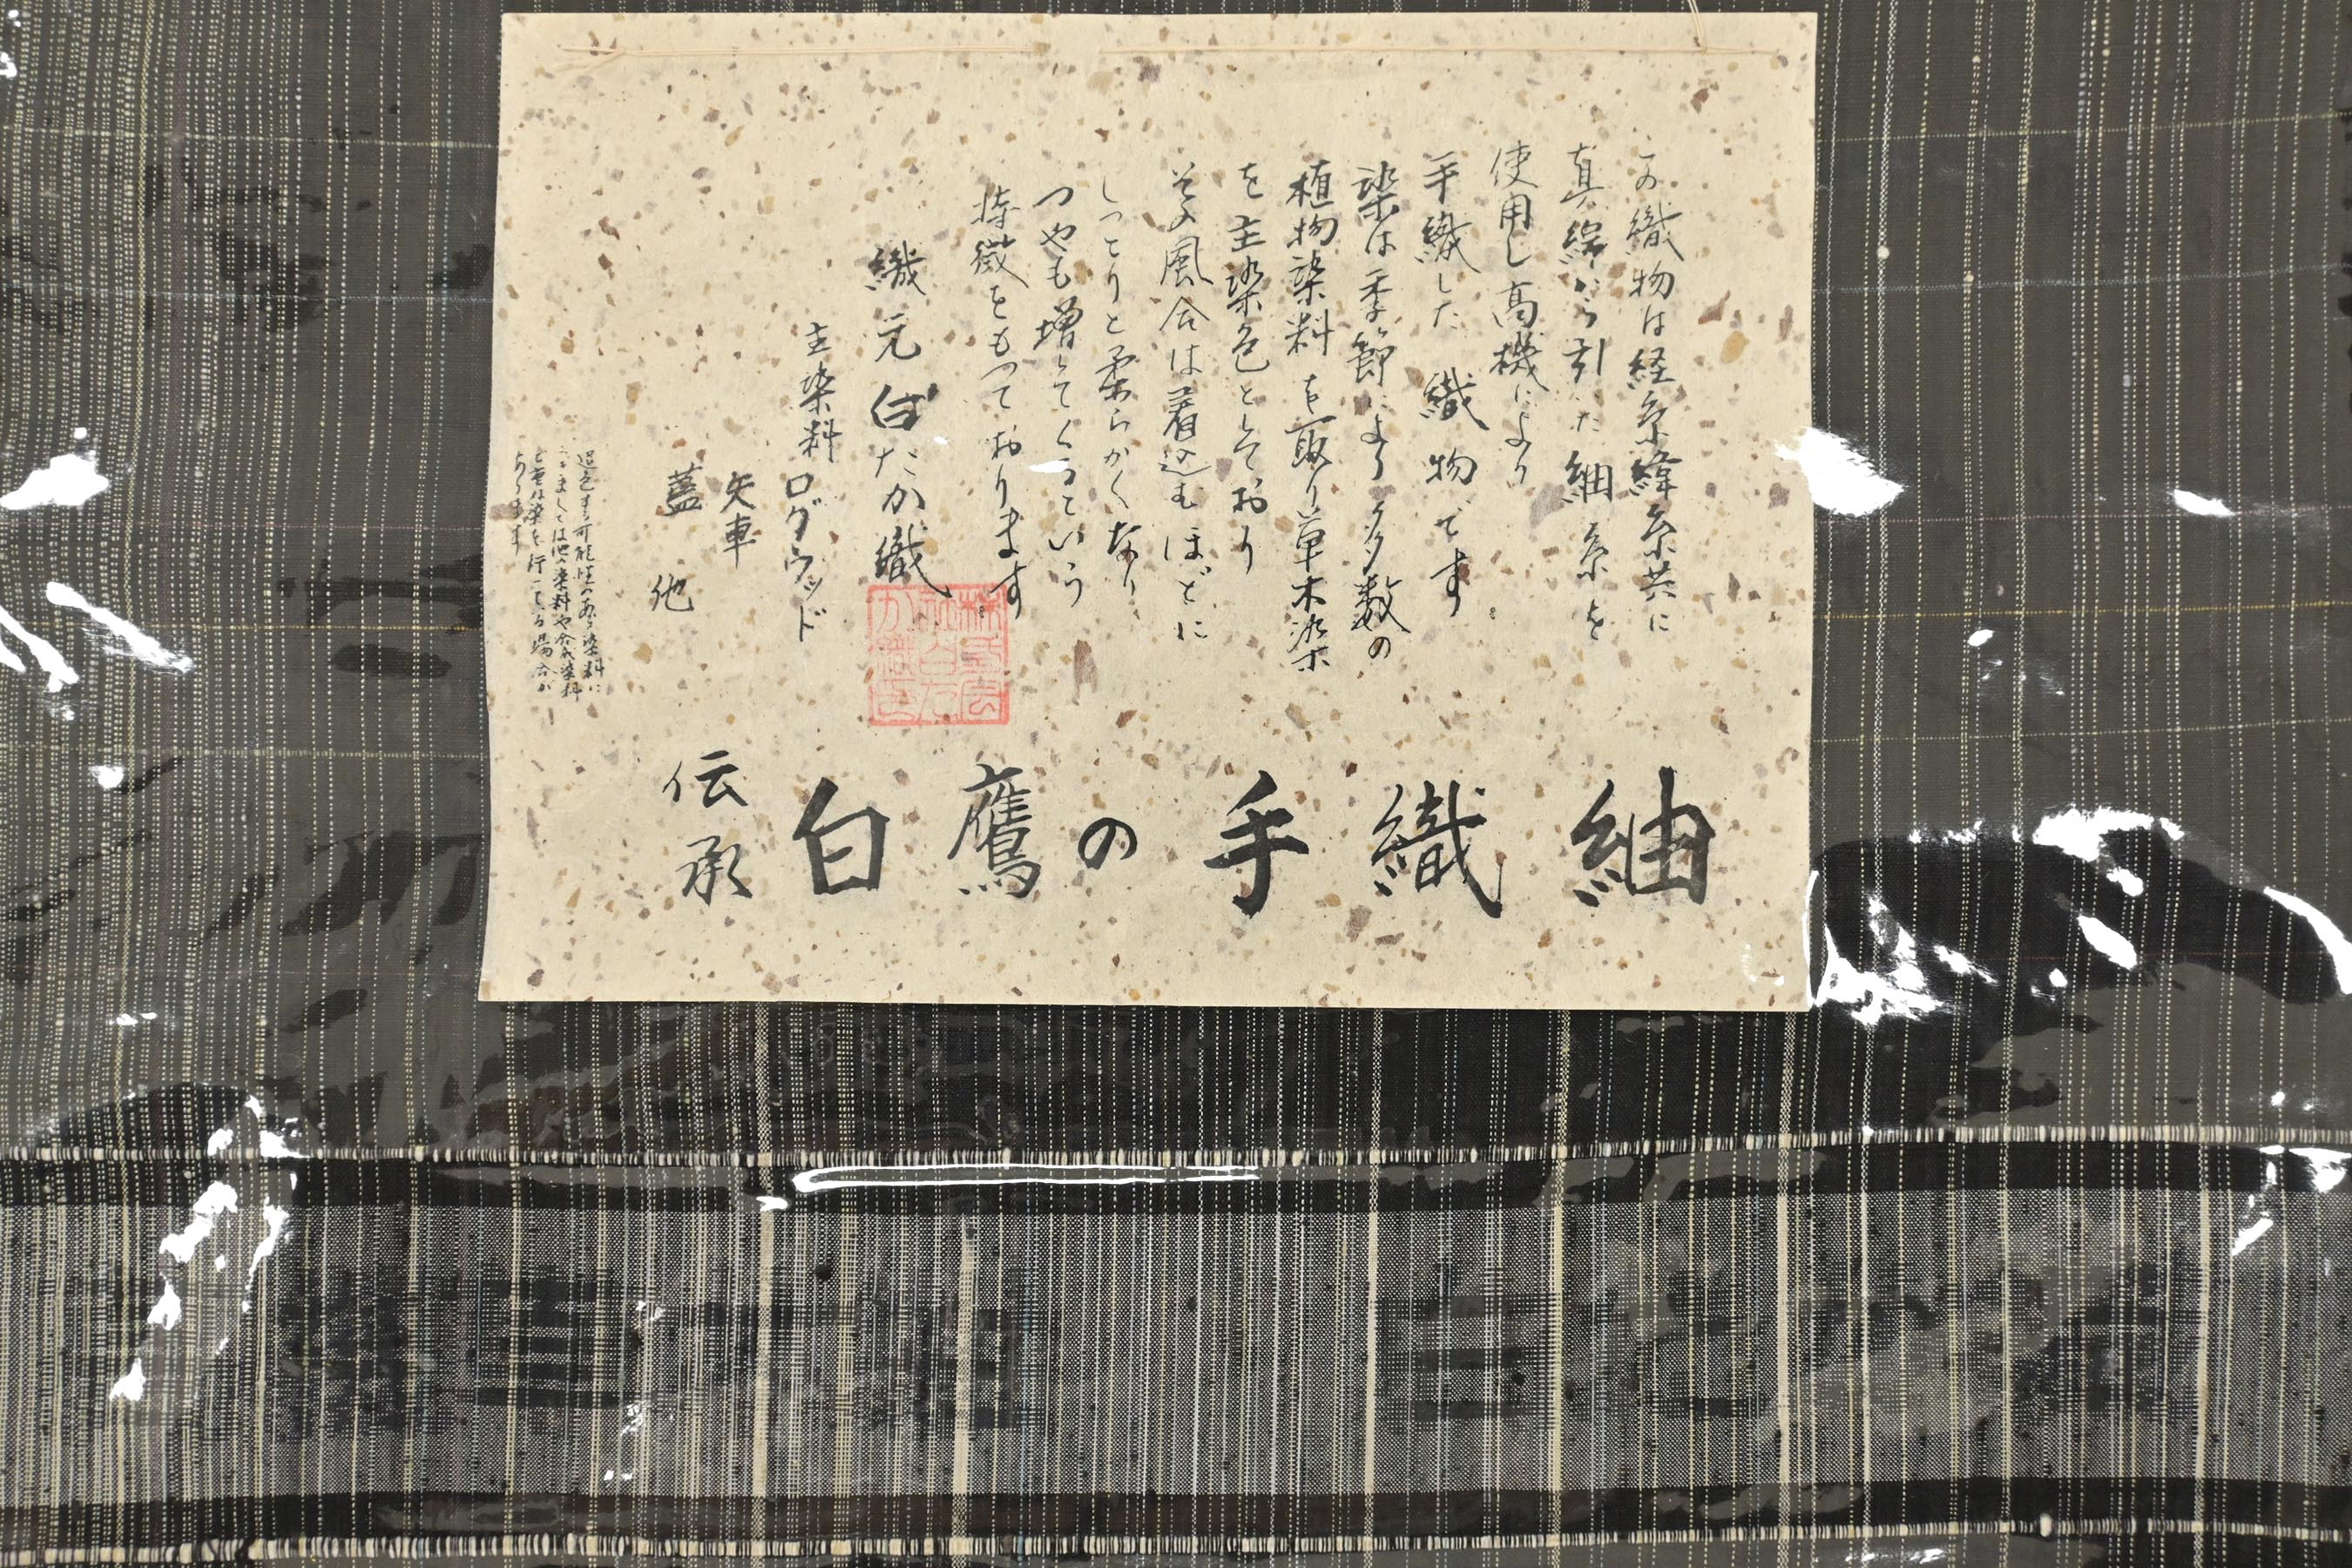 この織物は経糸緯糸共に
真綿から引いた紬糸を
使用し高機により
手織した織物です。
染は季節により多数の
植物染料を取り草木染
を主染色としており
その風合は着込むほどに
しっとりと柔らかくなり
つやも増してくるという
特徴をもっております。
織元 白たか織
株式会
社白た
か織印
主染料 ログウッド
矢車
藍 他
退色する可能性のある染料に
つきましては他の染料や合成染料
と重ね染を行っている場合が
あります
伝承
白鷹の手織紬